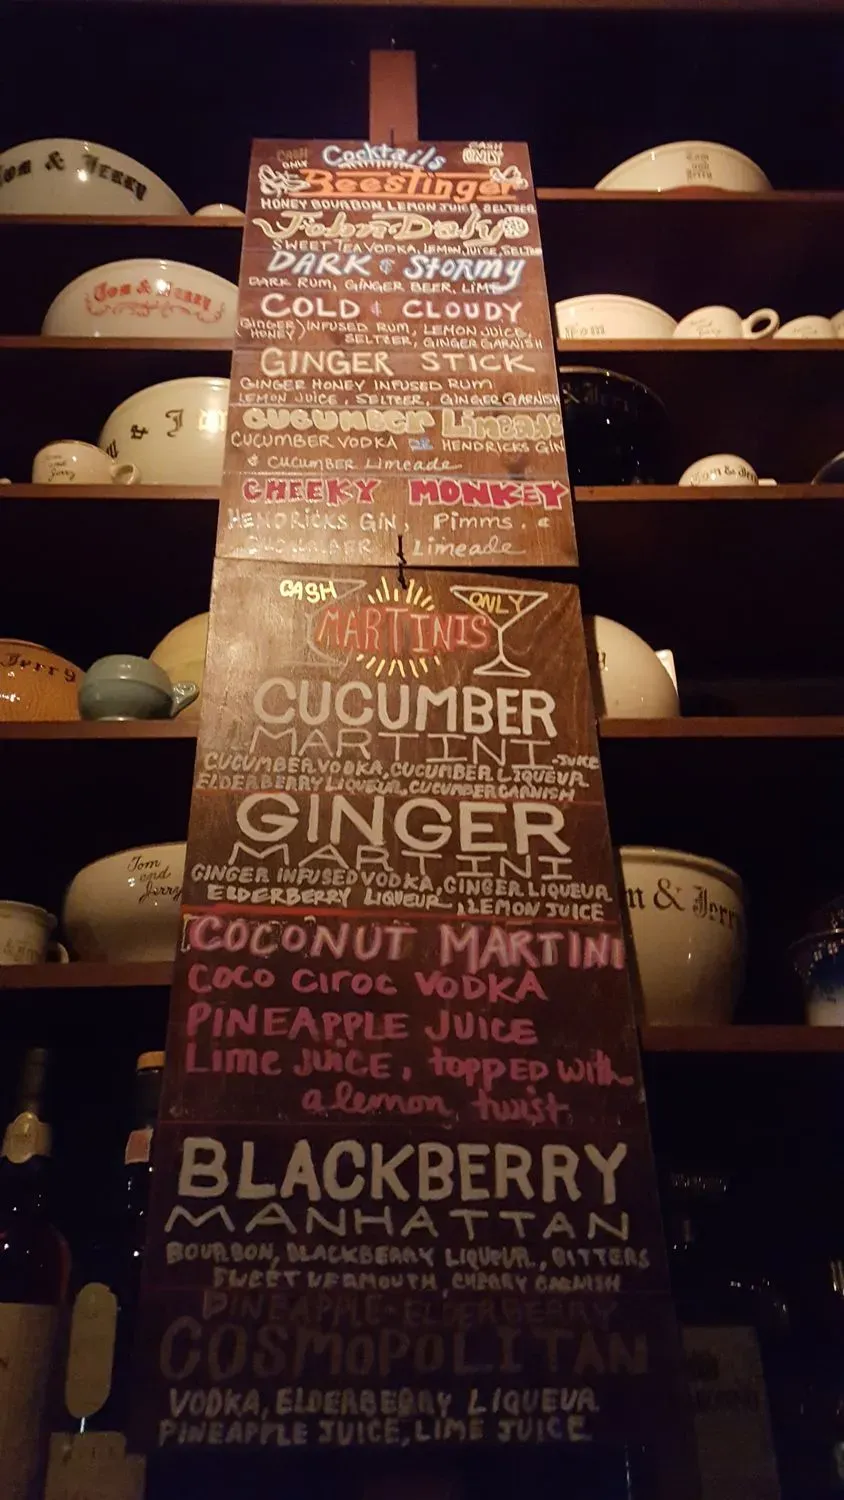 CASH ONLY
Cocktails
CASH ONLY
Beestinger
HONEY BOURBON, LEMON JUICE, SELTZER
John Daly
SWEET TEA VODKA, LEMON JUICE, SELTZ
DARK & Stormy
DARK RUM, GINGER BEER, LIME
COLD & CLOUDY
GINGER HONEY INFUSED RUM, LEMON JUICE,
SELTZER, GINGER GARNISH
GINGER STICK
GINGER HONEY INFUSED RUM
LEMON JUICE, SELTZER, GINGER GARNISH
CUCUMBER Limeade
CUCUMBER VODKA OR HENDRICKS GIN
& CUCUMBER Limeade
CHEEKY MONKEY
HENDRICKS GIN, Pimms. &
CUCUMBER Limeade
CASH ONLY
MARTINIS
CUCUMBER
MARTINI
CUCUMBER VODKA, CUCUMBER LIQUEUR -JUICE
ELDERBERRY LIQUEUR, CUCUMBER GARNISH
GINGER
MARTINI
GINGER INFUSED VODKA, GINGER LIQUEUR
ELDERBERRY LIQUEUR, LEMON JUICE
COCONUT MARTINI
COCO CIROC VODKA
PINEAPPLE JUICE
Lime JUICE, topped with
a lemon twist
BLACKBERRY
MANHATTAN
BOURBON, BLACKBERRY LIQUEUR, BITTERS
SWEET VERMOUTH, CHERRY GARNISH
PINEAPPLE-ELDERBERRY
COSMOPOLITAN
VODKA, ELDERBERRY LIQUEUR
PINEAPPLE JUICE, LIME JUICE
Tom & Jerry
Tom & Jerry
& J
Tom and Jerry
Jerry
Tom and Jerry
Tom & Jerry
m & Jerr